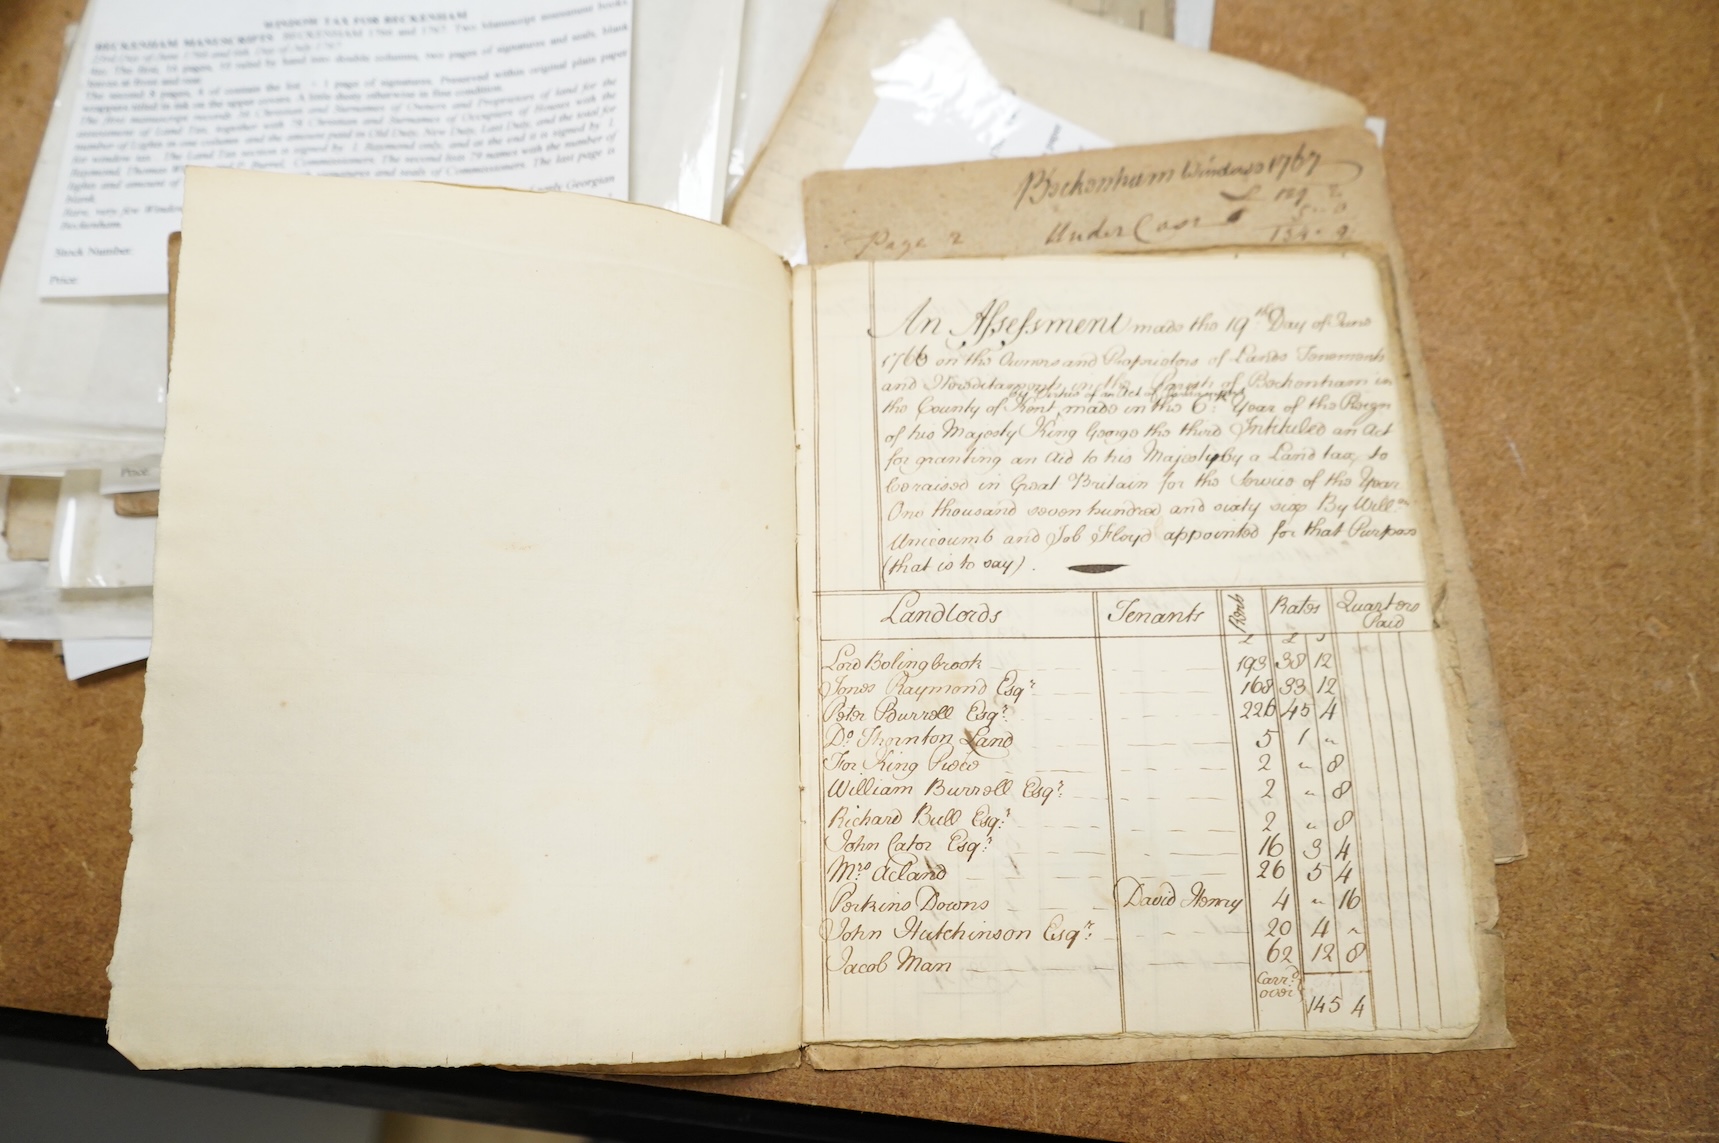 WINDOW TAX FOR BECKENHAM
BECKENHAM MANUSCRIPTS. BECKENHAM 1766 and 1767. Two Manuscript assessment books
23rd Day of June 1766 and 6th Day of July 1767
The first, 14 pages, 10 ruled by hand into double columns, two pages of signatures and seals, blank
leaves at front and rear
The second 8 pages, 6 of contain the list + 1 page of signatures. Preserved within original plain paper
wrappers titled in ink on the upper covers. A little dusty otherwise in fine condition.
The first manuscript records 36 Christian and Surnames of Owners and Proprietors of land for the
assessment of Land Tax, together with 78 Christian and Surnames of Occupiers of Houses with the
number of Lights in one column, and the amount paid in Old Duty, New Duty, Last Duty, and the total for
for window tax. The Land Tax section is signed by J. Raymond only, and at the end it is signed by J.
Raymond, Thomas and P. Burrel, Commissioners. The second lists 79 names with the number of
lights and amount of signatures and seals of Commissioners. The last page is
blank
Rare, very few Window early Georgian
Beckenham
Stock Number:
Price:
Price:
Beckenham Windows 1767
Page 2 Under Cast
134 - 9
An Assessment made the 19th Day of June
1766 on the Owners and Proprietors of Lands Tenements
and Hereditaments in the Parish of Beckenham in
by Virtue of an Act of Parliament
the County of Kent, made in the 6th Year of the Reign
of his Majesty King George the third Intituled an Act
for granting an Aid to his Majesty by a Land tax, to
be raised in Great Britain for the Service of the Year
One thousand seven hundred and sixty six By Willm
Unicoumb and Job Floyd appointed for that Purpose
(that is to say).
Landlords Tenants Rent Rates Quarters Paid
£ £ s
Lord Bolingbrook 193 38 12
Jones Raymond Esqr 168 33 12
Peter Burrell Esqr: 226 45 4
Do Thornton Land 5 1 "
For King Piece 2 " 8
William Burrell Esqr: 2 " 8
Richard Bull Esq: 2 " 8
John Cator Esqr: 16 3 4
Mrs Acland 26 5 4
Perkins Downs David Henry 4 " 16
John Hutchinson Esqr: 20 4 "
Jacob Man 62 12 8
Carrd over 145 4